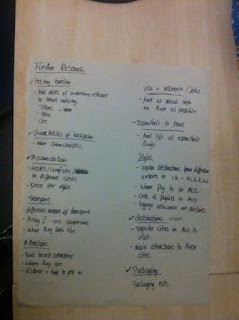 Further Research
✓ History timeline
- find dates of inventions relevant
to travel industry
- Planes
- Boats
- Cars
✓ Characteristics of backpacker
- more characteristics
✓ Accommodation
- hostels /
in different cities
- price per night
Transport
- different means of transport
- hiring / companies
- what they look like
Attractions
- find tourist attractions
- where they are
- distance + time to get in.
Visa + Insurance / Jobs
- find as much info
on these as possible
Essentials to pack
- find list of essentials
things
flights
- popular destinations from different
airports in UK -
- where fly to in Aus
- cost of flights to Aus
- baggage allowance on airlines
✓ destinations
- popular cities in Aus to
visit
- main attractions to these
cities
✓ Packaging
Packaging nets.